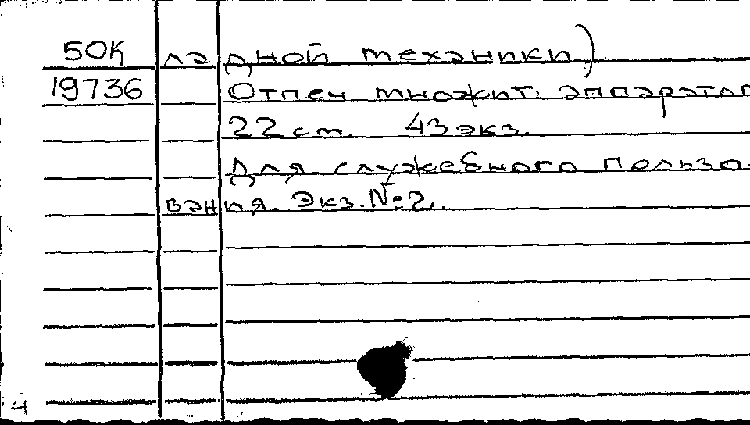 50К ладной механики)
19736 Отпеч. множит. аппаратом
22 см. 43 экз.
Для служебного пользо-
вания. Экз. №2.
4